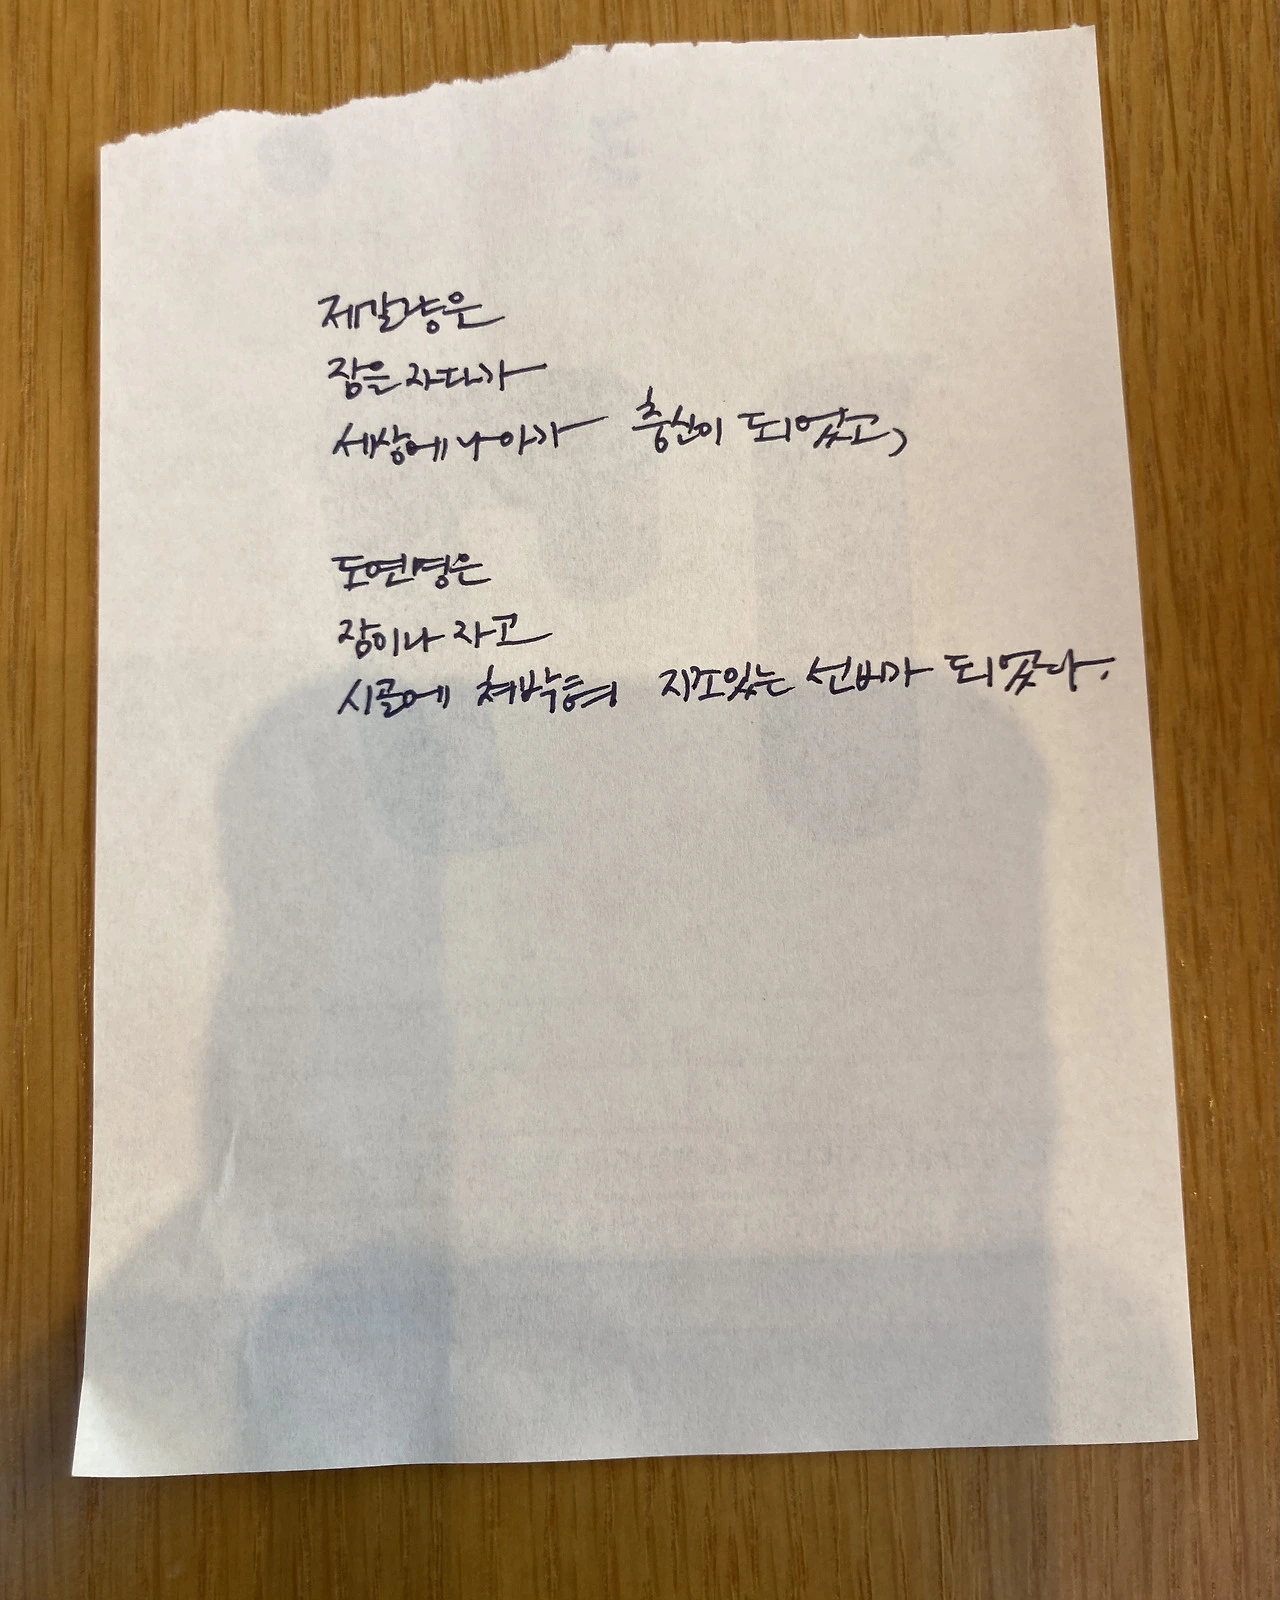 제갈량은
잠을 자다가
세상에 나아가 충신이 되었고,
도연명은
잠이나 자고
시골에 쳐박혀 지조있는 선비가 되었다.